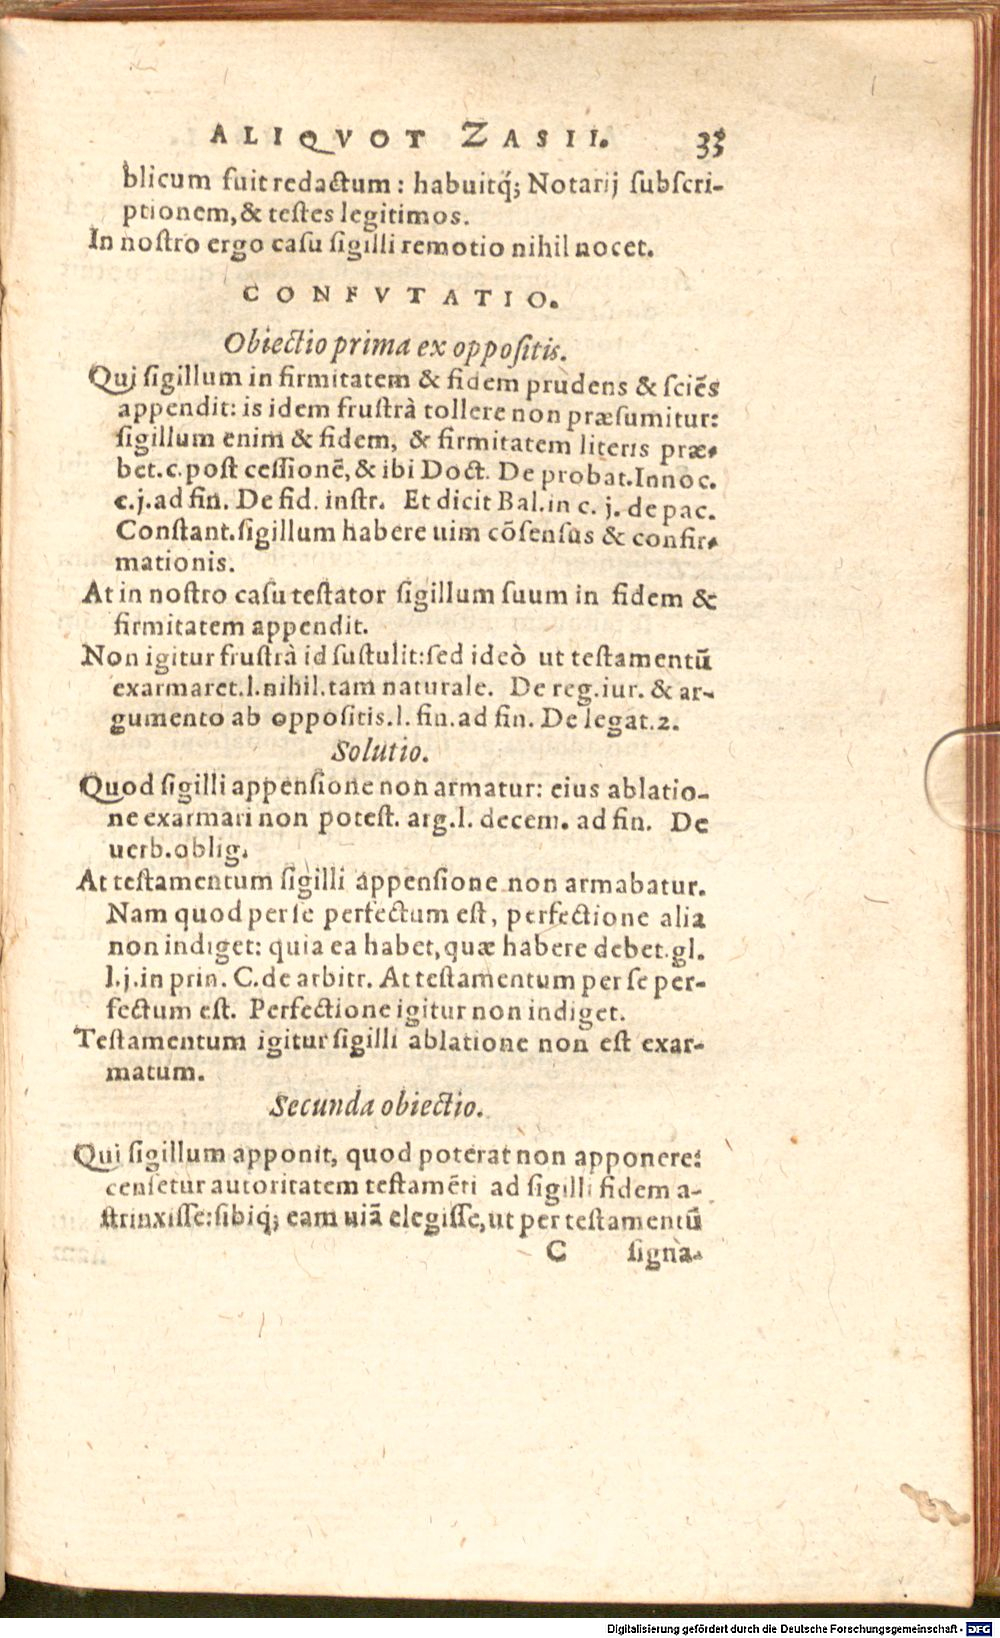 ALIQVOT ZASII. 33
blicum fuit redactum: habuitq́; Notarij subscri-
ptionem, & testes legitimos.
In nostro ergo casu sigilli remotio nihil nocet.
CONFVTATIO.
Obiectio prima ex oppositis.
Qui sigillum in firmitatem & fidem prudens & sciẽs
appendit: is idem frustrà tollere non præsumitur:
sigillum enim & fidem, & firmitatem literis præ-
bet. c. post cessionẽ, & ibi Doct. De probat. Innoc.
c. j. ad fin. De fid. instr. Et dicit Bal. in c. j. de pac.
Constant. sigillum habere uim cõsensus & confir-
mationis.
At in nostro casu testator sigillum suum in fidem &
firmitatem appendit.
Non igitur frustrà id sustulit: sed ideò ut testamentũ
exarmaret. l. nihil. tam naturale. De reg. iur. & ar-
gumento ab oppositis. l. fin. ad fin. De legat. 2.
Solutio.
Quod sigilli appensione non armatur: eius ablatio-
ne exarmari non potest. arg. l. decem. ad fin. De
uerb. oblig.
At testamentum sigilli appensione non armabatur.
Nam quod per se perfectum est, perfectione alia
non indiget: quia ea habet, quæ habere debet. gl.
l. j. in prin. C. de arbitr. At testamentum per se per-
fectum est. Perfectione igitur non indiget.
Testamentum igitur sigilli ablatione non est exar-
matum.
Secunda obiectio.
Qui sigillum apponit, quod poterat non apponere:
censetur autoritatem testamẽti ad sigilli fidem a-
strinxisse: sibiq; eam uiã elegisse, ut per testamentũ
C signa-
Digitalisierung gefördert durch die Deutsche Forschungsgemeinschaft - DFG